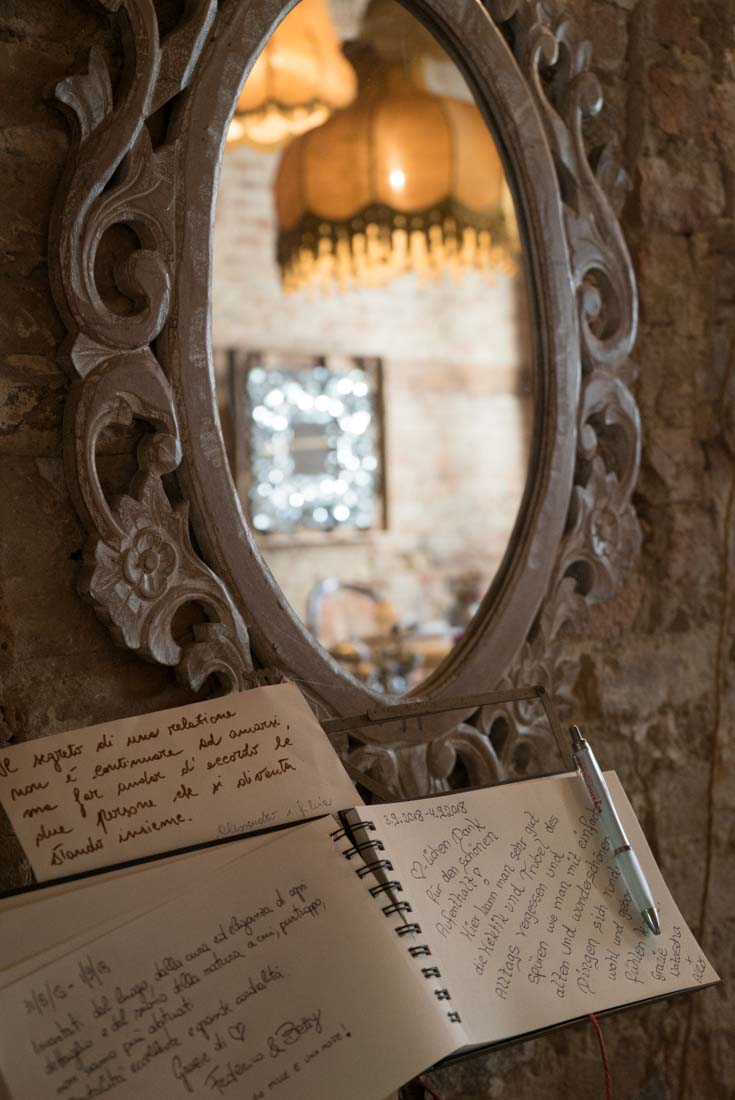 Il segreto di una relazione
non è continuare ad amarsi,
ma far andar d'accordo le
due persone che si diventa
stando insieme.
Alessandro
incantati dal luogo, dalla cura ed eleganza di ogni
dettaglio e dal suono della natura a cui, purtroppo,
non siamo più abituati.
ospitalità eccellente e grande cordialità.
Grazie di ♡
Federico & Betty
3.2.2018-4.2.2018
♡-lichen Dank
für den schönen
Aufenthalt!
Hier kann man sehr gut
die Hektik und Trubel des
Alltags vergessen und
spüren wie man mit einfachen
alten und wunderschönen
Dingen sich rund
wohl und
fühlen
Grazie
Natascha
+